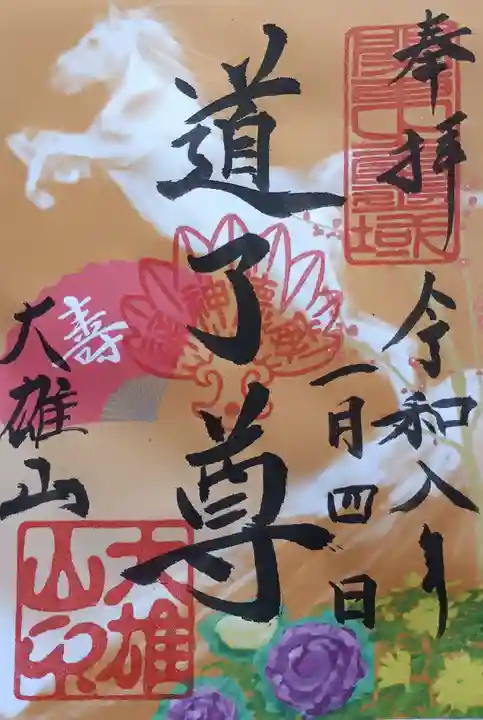 奉拝
令和八年
一月四日
道了尊
壽
大雄山
大雄山印